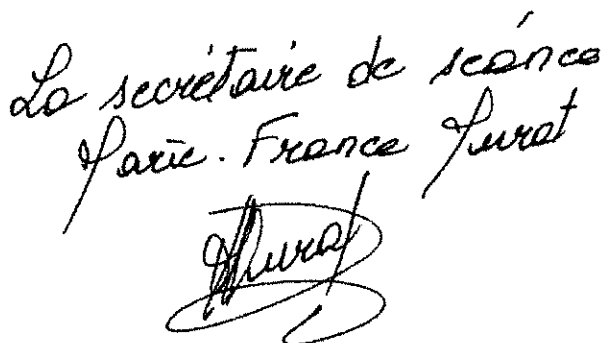 La secrétaire de séance
Marie-France Murat
Murat